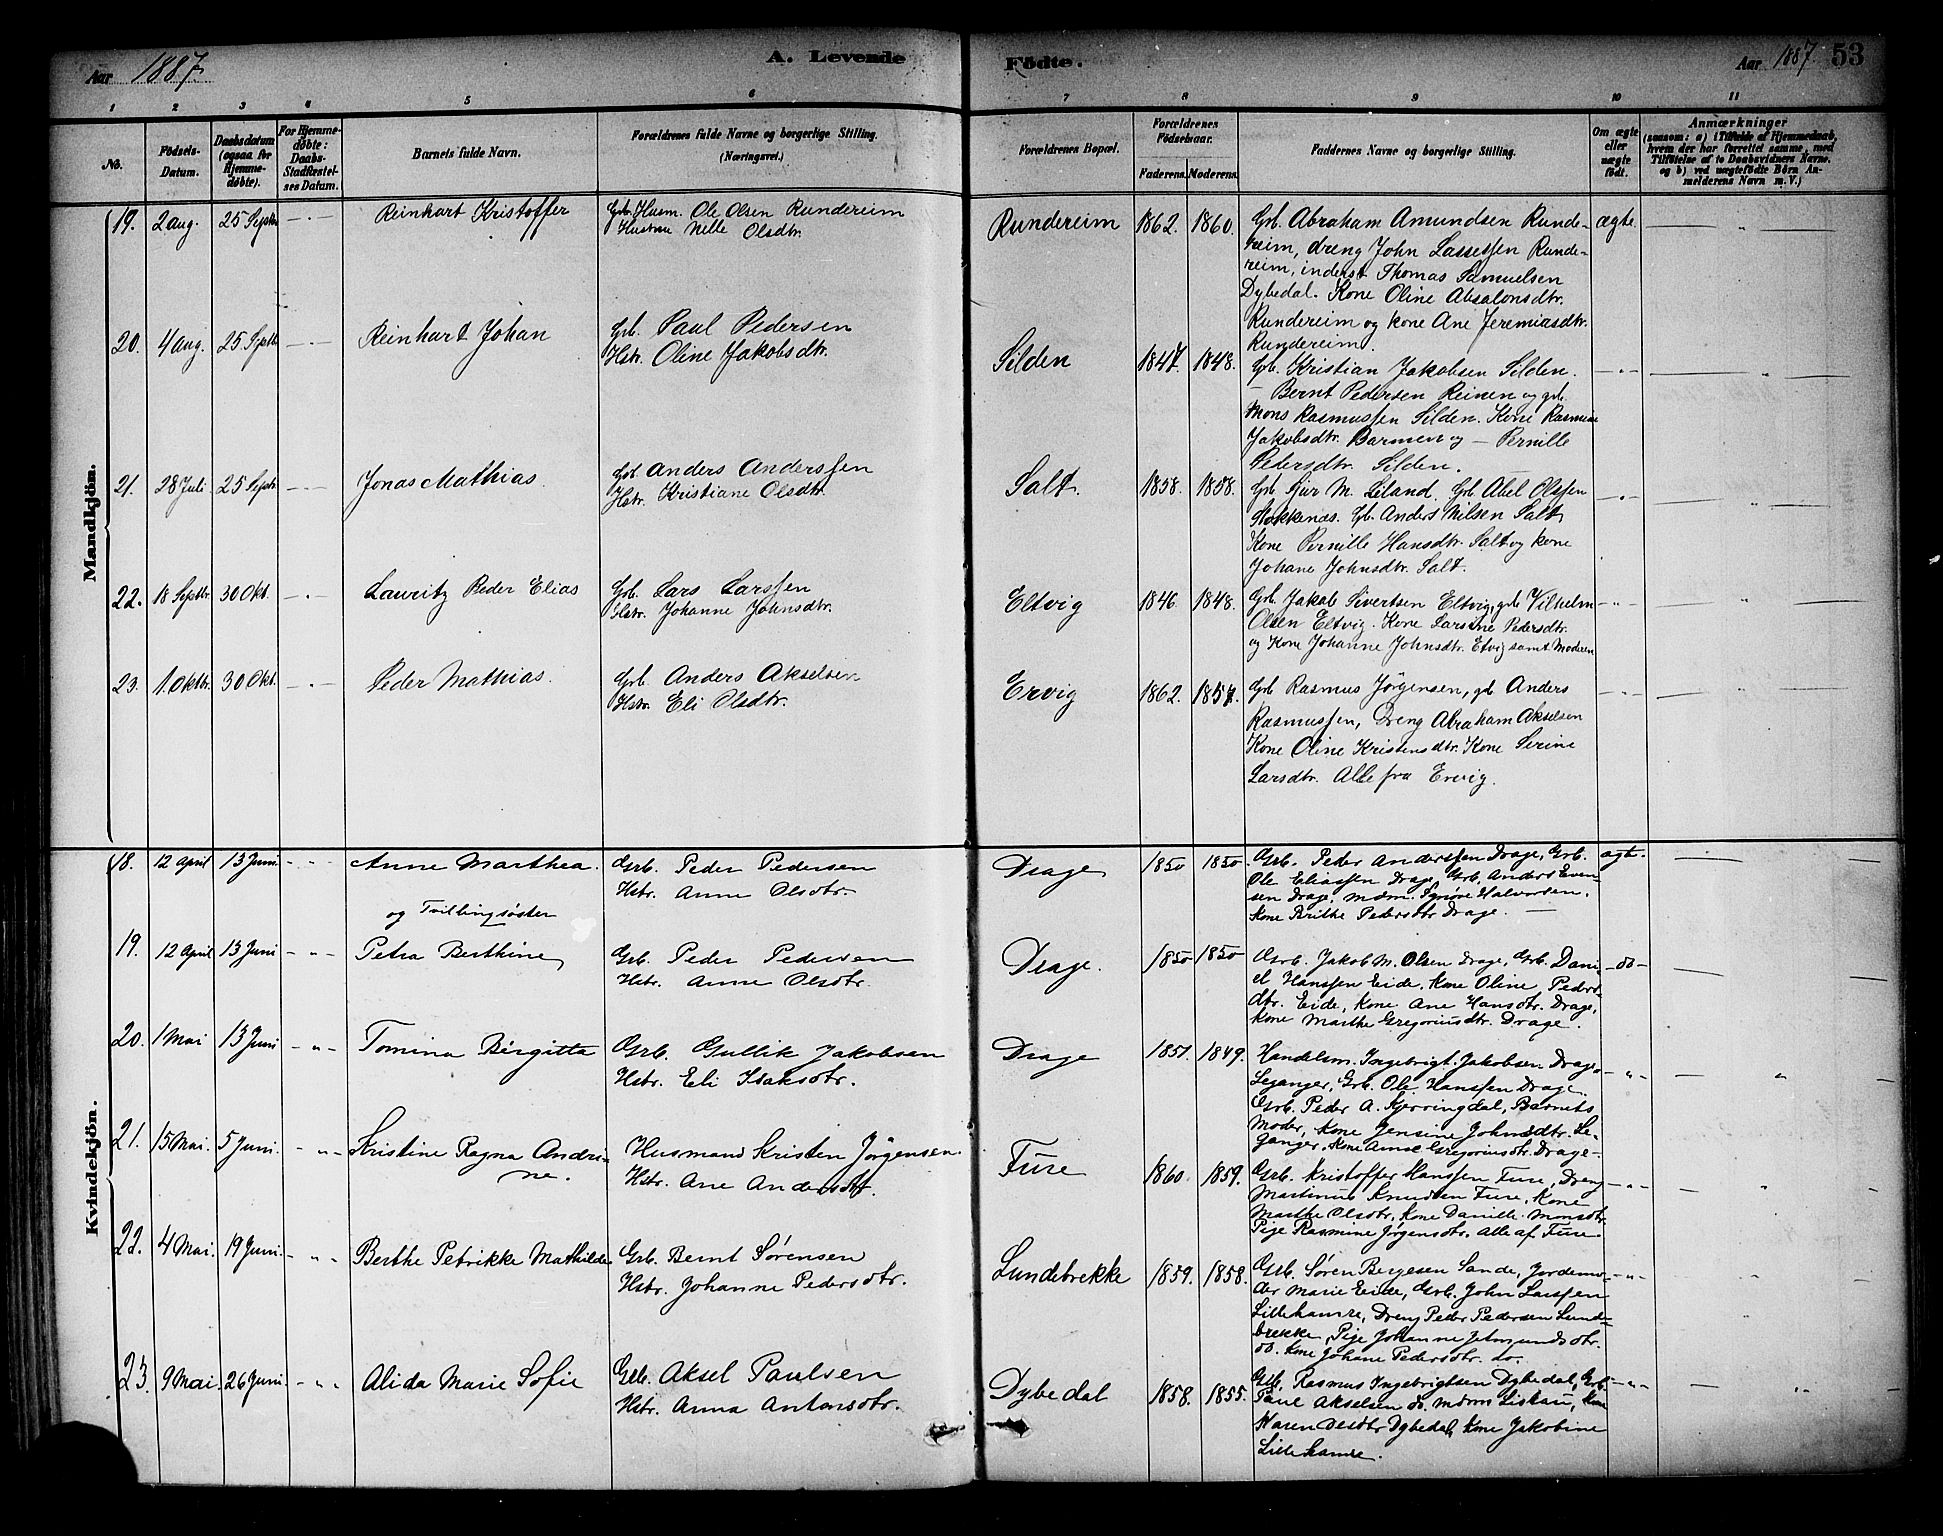 Aar 1887. A. Levende Födte. Aar 1887. 53
1 2 3 4 5 6 7 8 9 10 11
No.
Födsels-
Datum.
Daabsdatum
(ogsaa for
Hjemme-
døbte).
For Hjemme-
døbte:
Daabs-
Stadfæstel-
ses Datum.
Barnets fulde Navn.
Forældrenes fulde Navne og borgerlige Stilling.
(Næringsvei.)
Forældrenes Bopæl.
Forældrenes
Födselsaar.
Faderens. Moderens.
Faddernes Navne og borgerlige Stilling.
Om ægte
eller
uægte
født.
Anmærkninger
(saasom: a) i Tilfælde af Hjemmedaab,
hvem der har forrettet samme, med
Tilföielse af to Daabsvidners Navne,
og b) ved uægtefödte Börn An-
melderens Navn m. V.)
Mandkjön.
19. 2 aug. 25 Septr. Reinhart Kristoffer
Grb. Husm. Ole Olsen Rundereim
Hustru Nille Olsdtr.
Rundereim 1862. 1860.
Grb. Abraham Amundsen Runde-
reim, dreng John Lassessen Runde-
reim, inderst Thomas Samuelsen
Dybedal. Kone Oline Absalonsdtr.
Rundereim og kone Ane Jeremiasdtr.
Rundereim.
ægte.
20. 4 aug. 25 Septr. Reinhard Johan
Grb. Paul Pedersen
Hstr. Oline Jakobsdtr.
Silden 1847. 1848.
Grb. Kristian Jakobsen Silden.
— Bernt Pedersen Reinen og grb.
Mons Rasmussen Silden. Kone Rasmine
Jakobsdtr. Barmen og — Pernille
Pedersdtr. Silden.
21. 28 Juli 25 Septr. Jonas Mathias
Grb. Anders Anderssen
Hstr. Kristiane Olsdtr.
Salt. 1858. 1858.
Grb. Sjur M. Leland. Grb. Abel Olssen
Stokkenæs. Grb. Anders Nilsen Salt,
Kone Pernille Hansdtr. Salt og kone
Johane Johnsdtr. Salt.
22. 18 Septr. 30 Okt. Lauritz Peder Elias
Grb. Lars Larssen
Hstr. Johanne Johnsdtr.
Eltvig 1846. 1848.
Grb. Jakob Sivertsen Eltvig, grb Vilhelm
Olsen Eltvig. Kone Larsine Pedersdtr.
og Kone Johanne Johnsdtr. Eltvig samt Moderen
23. 1. Oktbr. 30 Okt. Peder Mathias.
Grb. Anders Akselsen
Hstr. Eli Olsdtr.
Ervig 1862. 1857.
Grb Rasmus Jørgensen, grb Anders
Rasmussen, Dreng Abraham Akselsen
Kone Oline Kristensdtr. Kone Serine
Larsdtr. Alle fra Ervig.
Kvindekjön.
18. 12 April 13 Juni. Anne Marthea.
og Tvillingsøster
Grb. Peder Pedersen
Hstr. Anne Olsdtr.
Drage 1850 1850.
Grb. Peder Anderssen Drage, Grb.
Ole Eliassen Drage, Grb. Anders Even-
sen Drage, Mdm. Synøve Halvorsen,
Kone Brithe Pedersdtr Drage. —
ægte.
19. 12 April 13 Juni Petra Berthine,
Grb. Peder Pedersen
Hstr. Anne Olsdtr.
Drage. 1850 1850
Grb. Jakob M. Olsen Drage, Grb. Dani-
el Hanssen Eide, Kone Oline Peders-
dtr. Eide, Kone Ane Hansdtr. Drage,
Kone Marthe Gregoriusdtr. Drage.
do
20. 1 Mai 13 Juni Tomina Birgitta
Grb. Gullik Jakobsen
Hstr. Eli Isaksdtr.
Drage 1851. 1849.
Handelsm. Ingebrigt Jakobsen Drage,
Leganger, Grb. Ole Hanssen Drage.
Grb. Peder A. Kjerringdal, Barnets
Moder, Kone Jensine Johnsdtr. Le-
ganger, Kone Anne Gregoriusdtr. Drage.
21. 15 Mai. 5 Juni. Kristine Ragna Andri-
ne.
Husmand Kristen Jørgensen
Hstr. Ane Andersdtr.
Fure 1860. 1859.
Grb. Kristoffer Hanssen Fure, Dreng
Martinus Knudsen Fure, Kone
Marthe Olsdtr, Kone Danille Monsdtr.
Pige Rasmine Jørgensdtr. Alle af Fure.
22. 4 Mai. 19 Juni. Berthe Petrikke Mathilde
Grb. Bernt Sørensen
Hstr. Johanne Pedersdtr.
Lundebrekke 1859. 1858.
Grb. Søren Bergesen Sande, Jordemo-
der Marie Eide, Grb. John Larssen
Lillehamre, Dreng Peder Pedersen Lunde-
brekke, Pige Johanne Amundsdtr.
do. Kone Johane Pedersdtr. do.
23. 9 Mai. 26 Juni. Alida Marie Sofie
Grb. Aksel Paulsen
Hstr. Anna Antonsdtr.
Dybedal 1858. 1855.
Grb. Rasmus Ingebrigtsen Dybedal, Grb.
Paul Akselsen do. Mdm Liskau, Kone
Maren Olsdtr Dybedal, Kone Jakobine
Lillehamre.